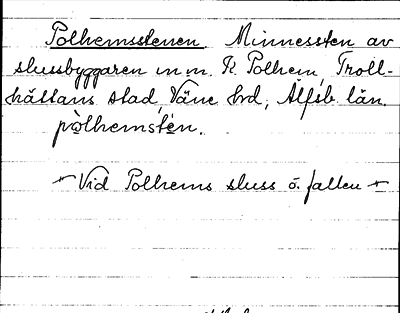 Polhemsstenen Minnessten av
slussbyggaren m m. K. Polhem, Troll-
hättans stad, Väne hrd, Älfsb. län.
pòlhemstén.
Vid Polhems sluss ö. fallen